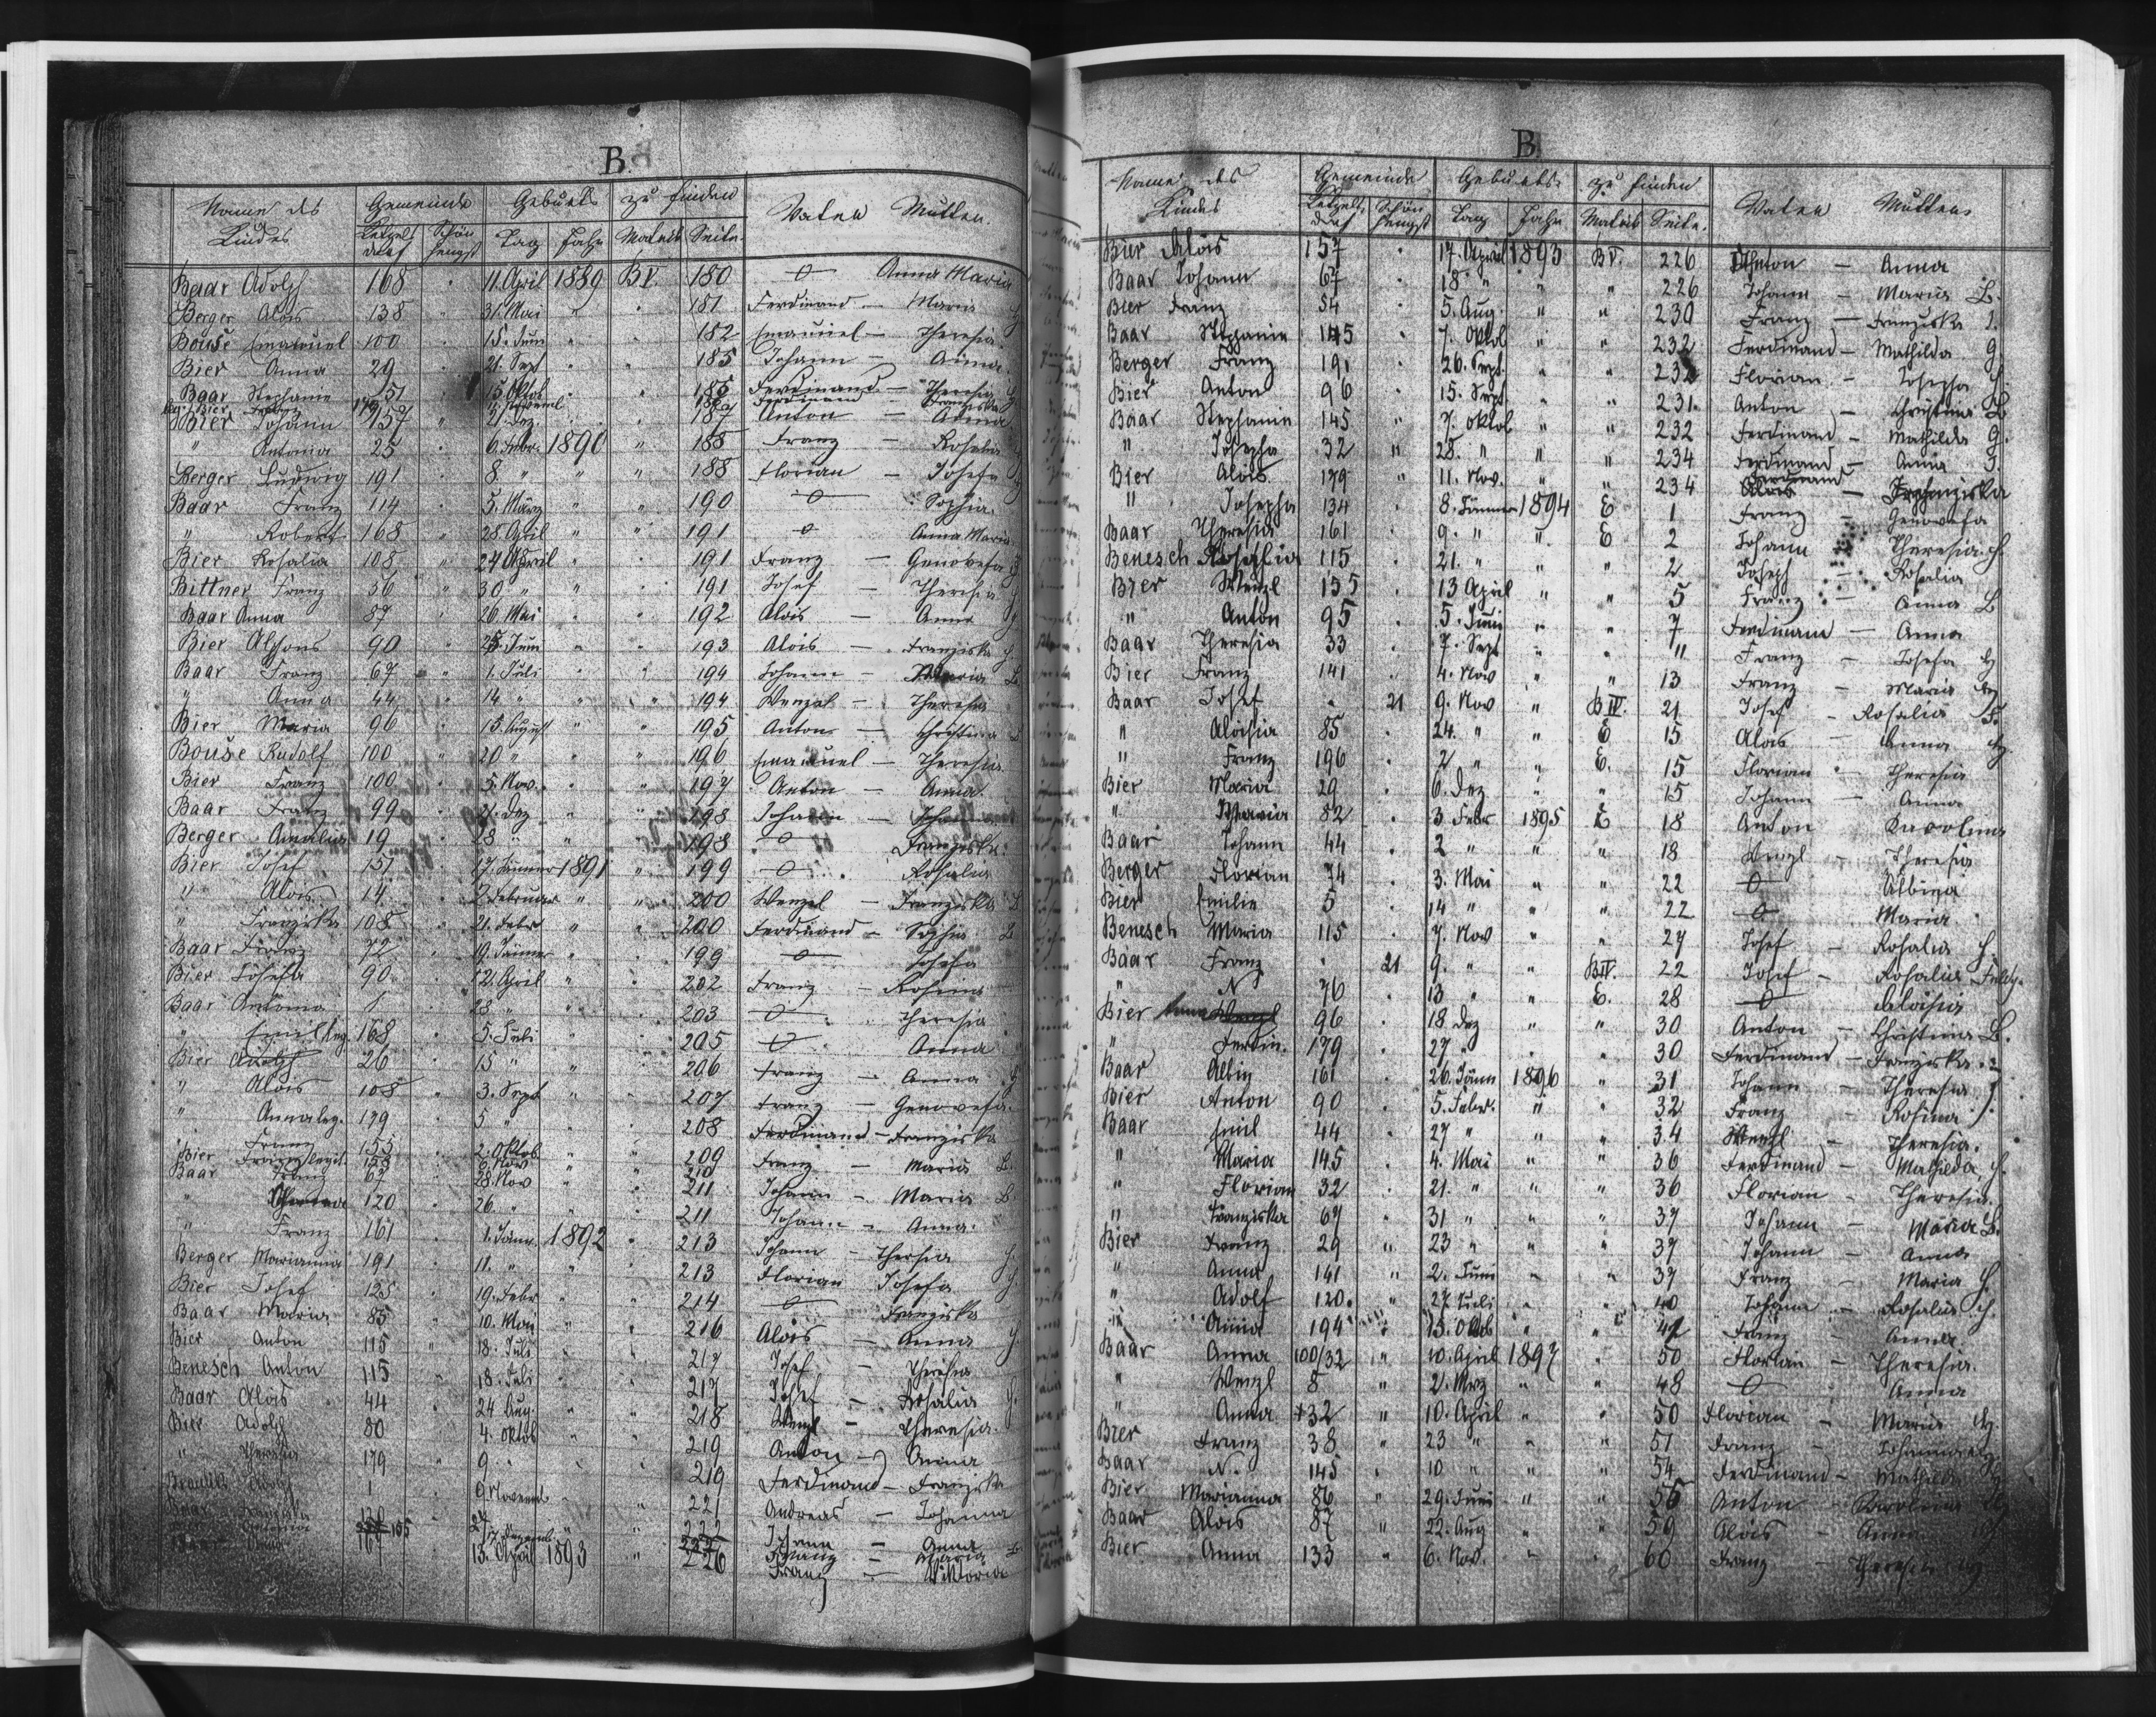 B.
Name des Gemeinde Geburts zu finden Vater Mutter
Kindes Ketzelsdorf Schönhengst Tag Jahr Matrik Seite
Baar Adolf 168 " 11. April 1889 BV. 180 0 Anna Maria
Berger Alois 138 " 31. Mai " " 181 Ferdinand — Maria
Bouše Emanuel 100 15. Juni " 182 Emanuel — Theresia
Bier Anna 29 " 21. Sept " " 185 Johann — Anna
Baar Stephanie 151 15. Oktob " 185 Ferdinand — Theresia
Bier Franz 179 Ferdinand — Franziska
Bier Johann 157 " 21. Dez. 187 Anton — Anna
" Antonia 25 " 6. Febr. 1890 " 188 Franz — Rosalia
Berger Ludwig 191 8. " " " 188 Florian — Josefa
Baar Franz 114 " 5. März " " 190 0 Sophia
" Robert 168 " 28. April " " 191 0 Anna Maria
Bier Rosalia 108 " 24 April " " 191 Franz — Genovefa
Bittner Franz 56 " 30 " " " 191 Josef — Theresia
Baar Anna 87 " 26. Mai " " 192 Alois — Anna
Bier Alfons 90 " 25. Juni " " 193 Alois — Franziska
Baar Franz 67 " 1. Juli " " 194 Johann — Maria
" Anna 44 " 14 " " " 194 Wenzel — Theresia
Bier Maria 96 " 15. August " " 195 Anton — Christina
Bouše Rudolf 100 " 20 " " " 196 Emanuel — Theresia
Bier Franz 100 " 5. Nov. " " 197 Anton — Anna
Baar Franz 99 " 21. Dez " 198 Johann —
Berger Amalia 19 " 28 " 198 0 Franziska
Bier Josef 151 " 17. Jänner 1891 " 199 0 Rosalia
" Alois 14 " 2. Februar " " 200 Wenzel — Franziska
" Franziska 108 " 21. Febr " " 200 Ferdinand — Sophia
Baar Franz 72 " 19. Jänner " 199 0 Josefa
Bier Josefa 90 " 12. April " 202 Franz — Rosina
Baar Antonia 1 " 28 " " 203 0 Theresia
" Emil leg. 168 " 5. Juli " 205 0 Anna
Bier Adolf 26 " 15 " " 206 Franz — Anna
" Alois 108 " 3. Sept " " 207 Franz — Genovefa
" Anna leg. 179 " 5 " " 208 Ferdinand — Franziska
Bier Franz 155 2. Oktob 209 Franz — Maria
Baar Franz 67 28. Nov 211 Johann — Maria
" 120 " 26. " " 211 Johann — Anna
" Franz 161 " 1. Jänn. 1892 " 213 Johann — Theresia
Berger Marianna 191 " 11. " " 213 Florian Josefa
Bier Josef 125 " 19. Febr " 214 0 Franziska
Baar Maria 85 " 10. Mai " 216 Alois — Anna
Bier Anton 115 " 18. Juli " 217 Josef — Theresia
Benesch Anton 115 " 18. Juli " 217 Josef — Rosalia
Baar Alois 44 " 24 Aug. " 218 Wenzl — Theresia
Bier Adolf 80 " 4. Oktob " 219 Anton — Anna
" Theresia 179 " 9 " " 219 Ferdinand — Franziska
Adolf 1 9. Novemb " 221 Andreas — Johanna
Baar Johann — Anna
Franz — Maria
13. April 1893 " 226 Franz — Viktoria
B
Name des Gemeinde Geburts- zu finden Vater Mutter
Kindes Ketzelsdorf Schönhengst Tag Jahr Matrik Seite.
Bier Alois 157 " 17. April 1893 BV. 226 Anton — Anna
Baar Johann 67 " 18 " " " 226 Johann — Maria L.
Bier Franz 54 " 5. Aug. " " 230 Franz — Franziska
Baar Stephanie 145 " 7. Oktob " " 232 Ferdinand — Mathilda
Berger Franz 191 " 26. Sept. " " 232 Florian — Josepha
Bier Anton 96 15. Sept. " " 231. Anton — Christina
Baar Stephanie 145 " 7. Oktob " " 232 Ferdinand — Mathilda
" Josepha 32 " 28. " " " 234 Ferdinand — Anna
Bier Alois 179 " 11. Nov. " " 234 Ferdinand — Franziska
" Josepha 134 " 8. Jänner 1894 E 1 Franz — Genovefa
Baar Theresia 161 " 9. " " E 2 Johann Theresia
Benesch Rosalia 115 " 21. " " " 2 Joseph — Rosalia
Bier Wenzl 155 " 13 April " " 5 Franz Anna
" Anton 95 " 5. Juni " " 7 Ferdinand — Anna
Baar Theresia 33 " 7. Sept " " 11 Franz — Josefa
Bier Franz 141 " 4. Nov " " 13 Franz — Maria
Baar Josef " 21 9. Nov " BIV. 21 Josef — Rosalia
" Aloisia 85 " 24. " " E 15 Alois — Anna
" Franz 196 " 2 " " E. 15 Florian — Theresia
Bier Maria 29 " 6. Dez " " 15 Johann — Anna
" Maria 82 " 3. Febr 1895 E 18 Anton Karolina
Baar Johann 44 " 2 " " " 18 Wenzl — Theresia
Berger Florian 74 " 3. Mai " " 22 0 Albina
Bier Emilie 5 " 14 " " " 22 0 Maria
Benesch Maria 115 " 7. Nov " " 27 Josef — Rosalia
Baar Franz " 21 9. " " BIV. 22 Josef — Rosalia
" N 76 " 13 " " E. 28 0 Aloisia
Bier Anna Wenzl 96 " 18 Dez " " 30 Anton — Christina L.
" Ferdin. 179 " 27 " " " 30 Ferdinand — Franziska
Baar Albin 161 " 26. Jänn 1896 " 31 Johann — Theresia
Bier Anton 90 " 5. Febr. " " 32 Franz — Rosina
Baar Emil 44 " 27 " " " 34 Wenzl — Theresia
" Maria 145 " 4. Mai " " 36 Ferdinand — Mathilda
" Florian 32 " 21. " " " 36 Florian — Theresia
" Franziska 67 " 31 " " " 37 Johann — Maria L.
Bier Franz 29 " 23 " " " 37 Johann — Anna
" Anna 141 " 2. Juni " " 37 Franz — Maria
" Adolf 120. " 27. Juli " " 40 Johann — Rosalia
" Anna 194 " 15. Oktob " " 42 Franz — Anna
Baar Anna 100/32 " 10. April 1897 " 50 Florian — Theresia
" Wenzl 8 " 2. Mrz " " 48 0 Anna
" Anna 32 " 10. April " " 50 Florian — Maria
Bier Franz 38 " 23 " " " 51 Franz — Johanna
Baar N. 145 " 10 " " " 54 Ferdinand — Mathilda
Bier Marianna 86 " 29. Juni " " 55 Anton — Karolina
Baar Alois 87 " 22. Aug " " 59 Alois — Anna
Bier Anna 133 " 6. Nov. " " 60 Franz — Theresia